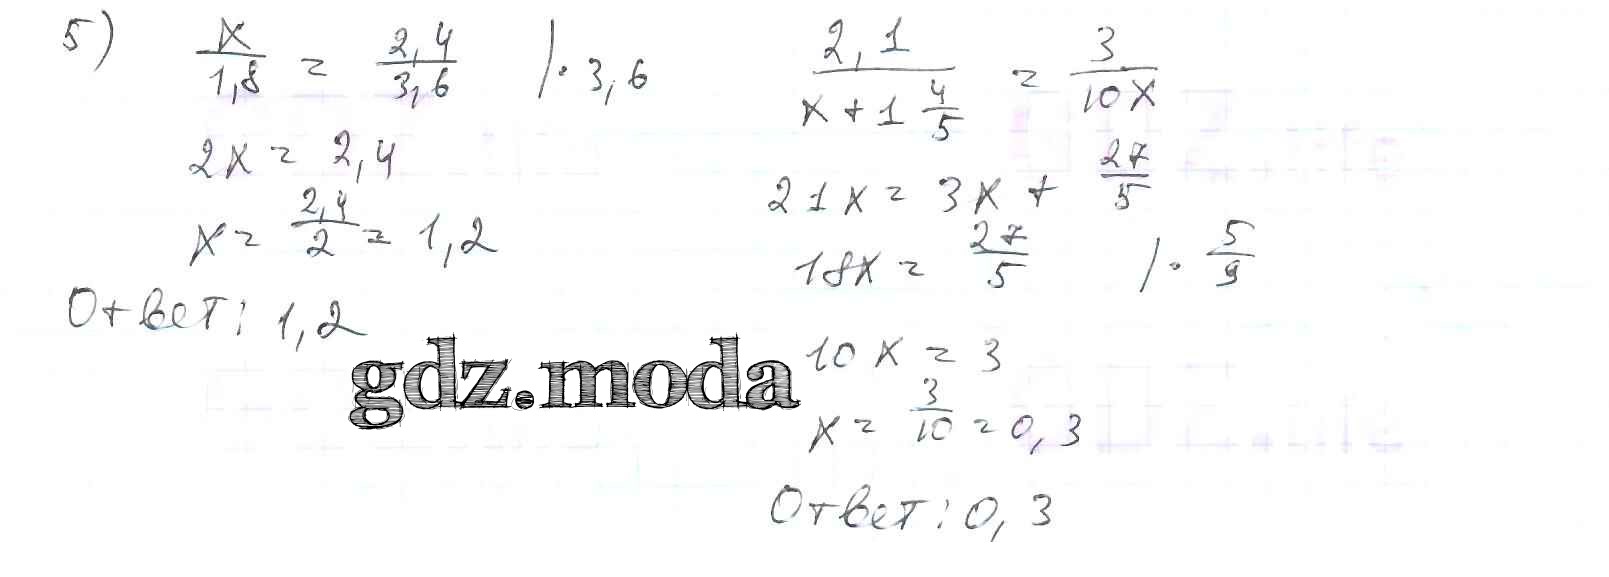 5) x/1,8 = 2,4/3,6 | · 3,6
2x = 2,4
x = 2,4/2 = 1,2
Ответ: 1,2
2,1/(x + 1 4/5) = 3/10x
21x = 3x + 27/5
18x = 27/5 | · 5/9
10x = 3
x = 3/10 = 0,3
Ответ: 0,3
gdz.moda